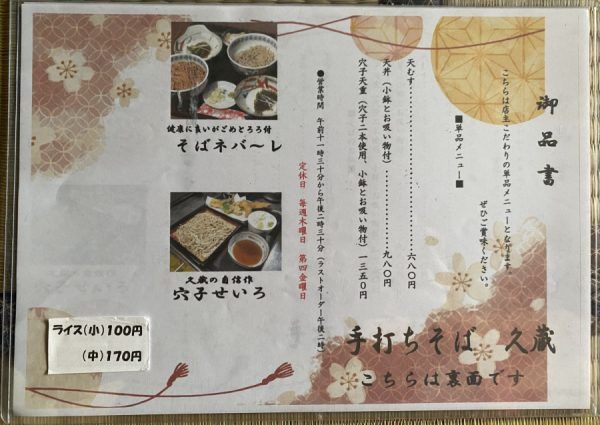 御品書
こちらは店主こだわりの単品メニューとなります
ぜひご賞味ください。
■単品メニュー■
天むす‥‥‥‥‥‥‥‥‥‥六八〇円
天丼（小鉢とお吸い物付）‥‥‥‥‥九八〇円
穴子天重（穴子二本使用、小鉢とお吸い物付）一三五〇円
●営業時間　午前十一時三十分から午後二時三十分（ラストオーダー午後二時）
定休日　毎週木曜日　第四金曜日
健康に良いがごめとろろ付
そばネバ〜レ
久蔵の自信作
穴子せいろ
ライス（小）100円
（中）170円
手打ちそば　久蔵
こちらは裏面です